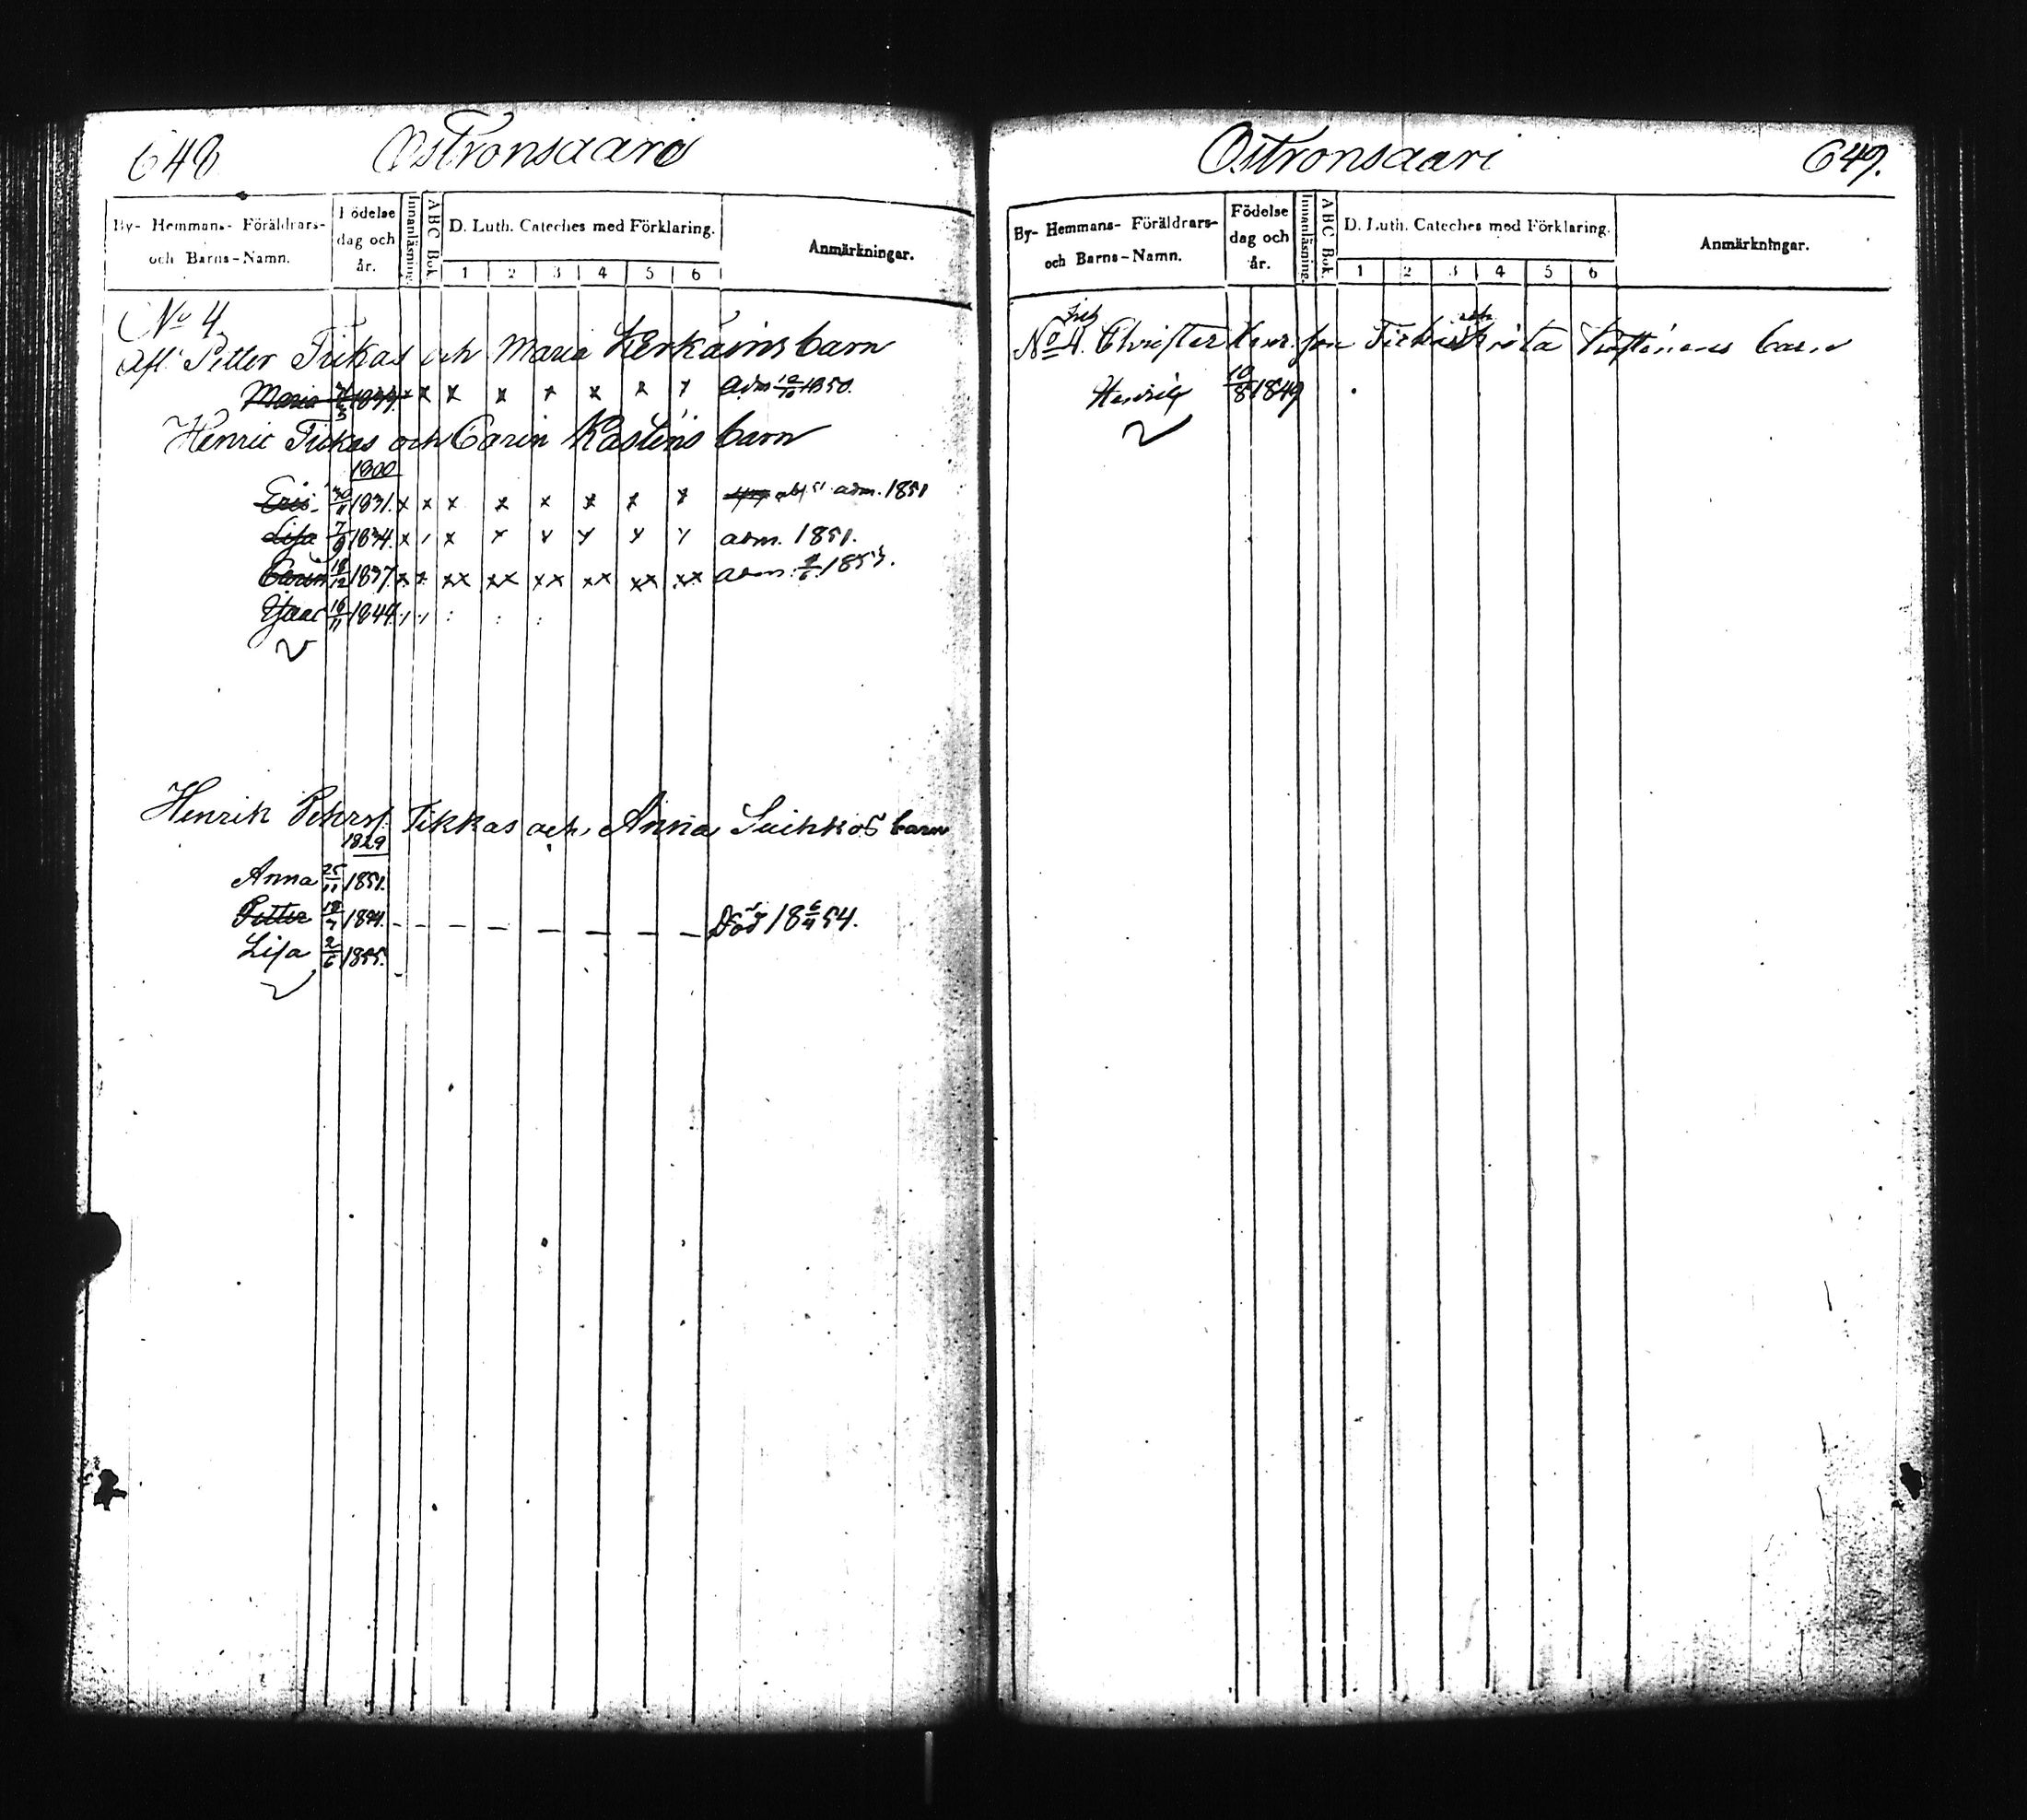 648 Ostronsaari
By- Hemmans- Föräldrars- och Barns-Namn. Födelse dag och år. Innanläsning. A B C Bok. D. Luth. Cateches med Förklaring. 1 2 3 4 5 6 Anmärkningar.
No 4.
Afl. Petter Tikkas och Maria Kerkäins barn
Maria 1834. x x x x x x x x adm 1850.
Henric Tikkas och Carin barn
1800
Eric 30/11 1831. x x x x x x x x adm. 1851
Lisa 7/9 1834. x x x x x x x adm. 1851.
Carin 18/12 1837. x x xx xx xx xx xx xx adm. 1853.
Isaac 16/11 1844.
Henrik Pehrs. Tikkas och Anna Suikkos barn
1829
Anna 25/11 1851.
Petter 18/7 1854. Död 18 6/11 54.
Lisa 2/6 1855.
Ostronsaari 649.
By- Hemmans- Föräldrars- och Barns-Namn. Födelse dag och år. Innanläsning. A B C Bok. D. Luth. Cateches med Förklaring. 1 2 3 4 5 6 Anmärkningar.
No 4. Christer Henr. son och barn
Henrik 10/8 1849